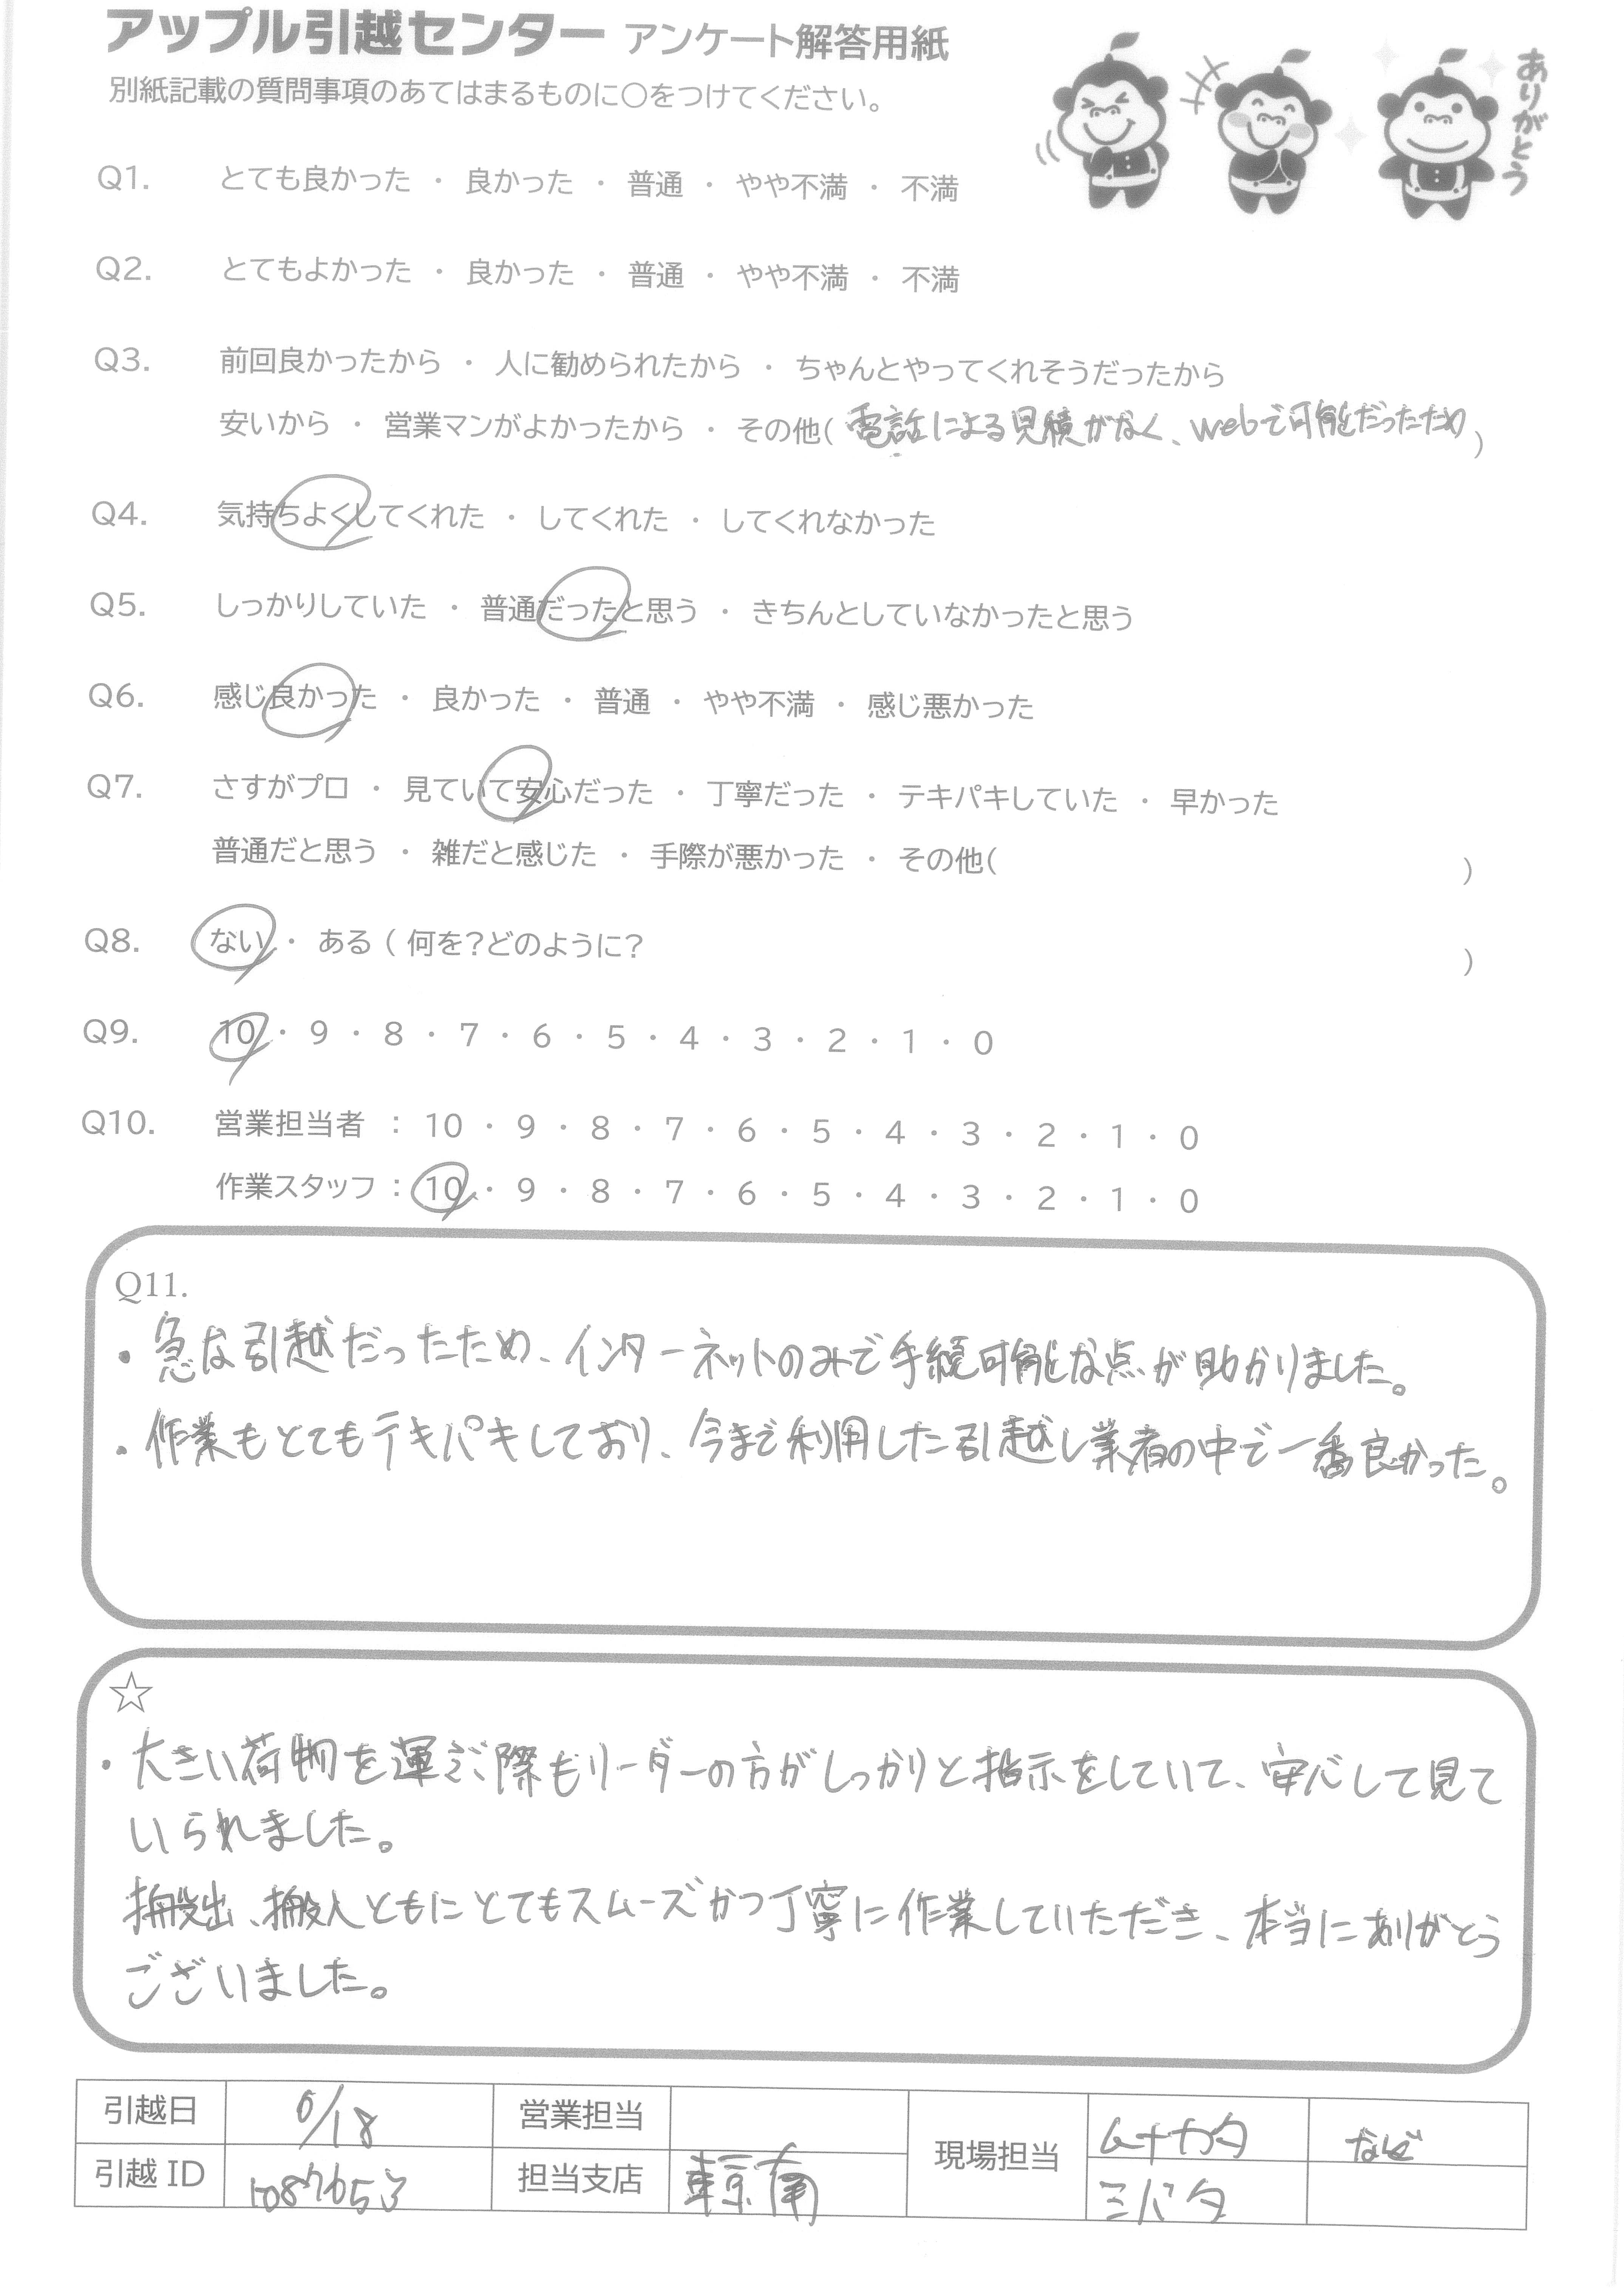 アップル引越センター アンケート解答用紙
別紙記載の質問事項のあてはまるものに○をつけてください。
ありがとう
Q1. とても良かった ・ 良かった ・ 普通 ・ やや不満 ・ 不満
Q2. とてもよかった ・ 良かった ・ 普通 ・ やや不満 ・ 不満
Q3. 前回良かったから ・ 人に勧められたから ・ ちゃんとやってくれそうだったから
安いから ・ 営業マンがよかったから ・ その他( 電話による見積がなく、webで可能だったため )
Q4. 気持ちよくしてくれた ・ してくれた ・ してくれなかった
Q5. しっかりしていた ・ 普通だったと思う ・ きちんとしていなかったと思う
Q6. 感じ良かった ・ 良かった ・ 普通 ・ やや不満 ・ 感じ悪かった
Q7. さすがプロ ・ 見ていて安心だった ・ 丁寧だった ・ テキパキしていた ・ 早かった
普通だと思う ・ 雑だと感じた ・ 手際が悪かった ・ その他( )
Q8. ない ・ ある ( 何を?どのように? )
Q9. 10 ・ 9 ・ 8 ・ 7 ・ 6 ・ 5 ・ 4 ・ 3 ・ 2 ・ 1 ・ 0
Q10. 営業担当者 : 10 ・ 9 ・ 8 ・ 7 ・ 6 ・ 5 ・ 4 ・ 3 ・ 2 ・ 1 ・ 0
作業スタッフ : 10 ・ 9 ・ 8 ・ 7 ・ 6 ・ 5 ・ 4 ・ 3 ・ 2 ・ 1 ・ 0
Q11.
・急な引越だったため、インターネットのみで手続可能な点が助かりました。
・作業もとてもテキパキしており、今まで利用した引越し業者の中で一番良かった。
☆
・大きい荷物を運ぶ際もリーダーの方がしっかりと指示をしていて、安心して見て
いられました。
搬出、搬入ともにとてもスムーズかつ丁寧に作業していただき、本当にありがとう
ございました。
引越日 6/18 営業担当 現場担当 ムナカタ など
引越 ID 担当支店 東京南 ミバタ